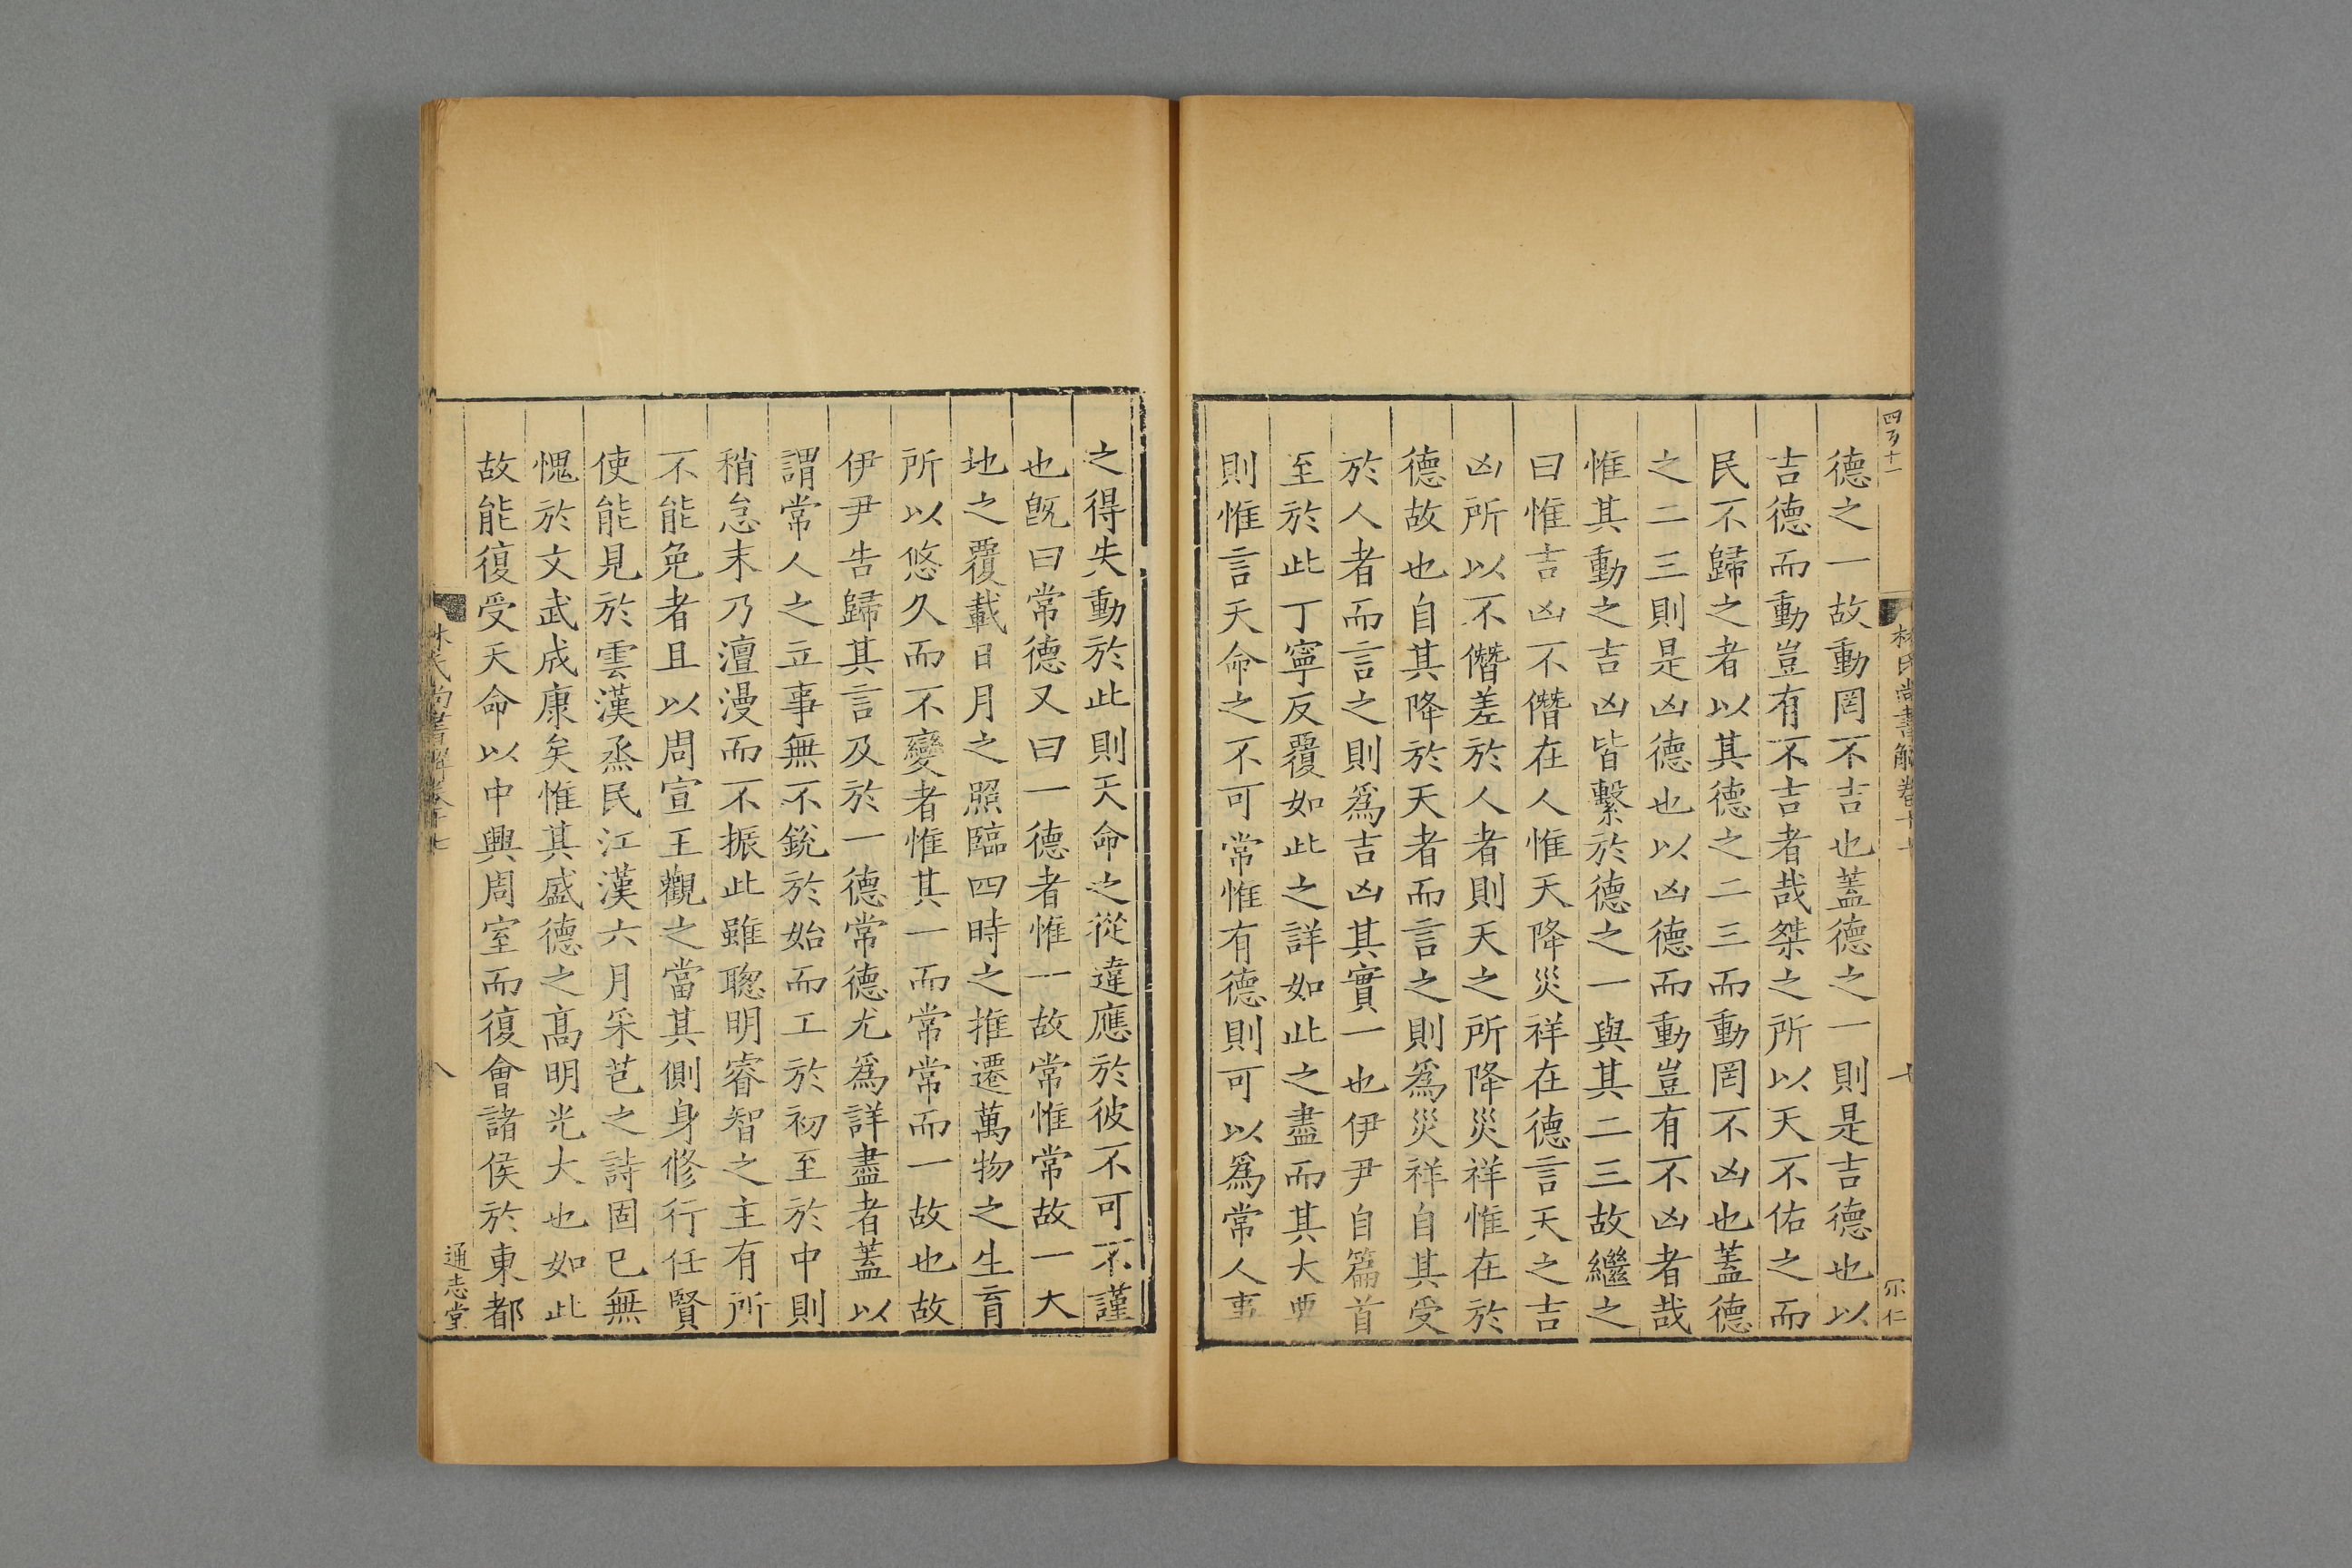 四百十一
林氏尚書解卷十七
七
尔仁
德之一故動罔不吉也蓋德之一則是吉德也以
吉德而動豈有不吉者哉桀之所以天不佑之而
民不歸之者以其德之二三而動罔不凶也蓋德
之二三則是凶德也以凶德而動豈有不凶者哉
惟其動之吉凶皆繫於德之一與其二三故繼之
曰惟吉凶不僭在人惟天降災祥在德言天之吉
凶所以不僭差於人者則天之所降災祥惟在於
德故也自其降於天者而言之則爲災祥自其受
於人者而言之則爲吉凶其實一也伊尹自篇首
至於此丁寧反覆如此之詳如此之盡而其大要
則惟言天命之不可常惟有德則可以爲常人事
之得失動於此則天命之從違應於彼不可不謹
也旣曰常德又曰一德者惟一故常惟常故一大
地之覆載日月之照臨四時之推遷萬物之生育
所以悠久而不變者惟其一而常常而一故也故
伊尹告歸其言及於一德常德尤爲詳盡者蓋以
謂常人之立事無不銳於始而工於初至於中則
稍怠末乃澶漫而不振此雖聰明睿智之主有所
不能免者且以周宣王觀之當其側身修行任賢
使能見於雲漢烝民江漢六月采芑之詩固已無
愧於文武成康矣惟其盛德之高明光大也如此
故能復受天命以中興周室而復會諸侯於東都
林氏尚書解卷十七
八
通志堂